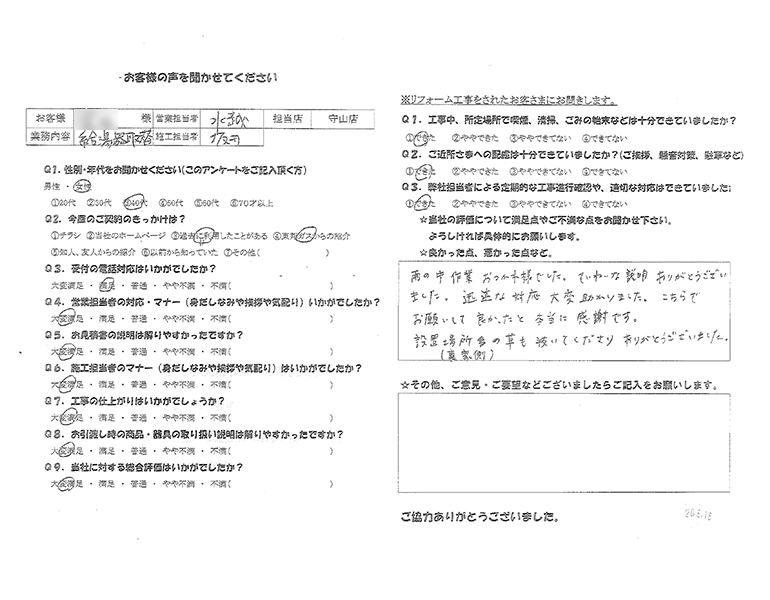 お客様の声を聞かせてください
お客様 様 営業担当者 担当店 守山店
業務内容 給湯器取替 施工担当者
Q1．性別・年代をお聞かせください(このアンケートをご記入頂く方)
男性 ・ 女性
①20代 ②30代 ③40代 ④50代 ⑤60代 ⑥70才以上
Q2．今回のご契約のきっかけは？
①チラシ ②当社のホームページ ③過去に利用したことがある ④東邦ガスからの紹介
⑤知人、友人からの紹介 ⑥以前から知っていた ⑦その他( )
Q3．受付の電話対応はいかがでしたか？
大変満足 ・ 満足 ・ 普通 ・ やや不満 ・ 不満( )
Q4．営業担当者の対応・マナー（身だしなみや挨拶や気配り）いかがでしたか？
大変満足 ・ 満足 ・ 普通 ・ やや不満 ・ 不満( )
Q5．お見積書の説明は解りやすかったですか？
大変満足 ・ 満足 ・ 普通 ・ やや不満 ・ 不満( )
Q6．施工担当者のマナー（身だしなみや挨拶や気配り）はいかがでしたか？
大変満足 ・ 満足 ・ 普通 ・ やや不満 ・ 不満( )
Q7．工事の仕上がりはいかがでしょうか？
大変満足 ・ 満足 ・ 普通 ・ やや不満 ・ 不満( )
Q8．お引渡し時の商品・器具の取り扱い説明は解りやすかったですか？
大変満足 ・ 満足 ・ 普通 ・ やや不満 ・ 不満( )
Q9．当社に対する総合評価はいかがでしたか？
大変満足 ・ 満足 ・ 普通 ・ やや不満 ・ 不満( )
※リフォーム工事をされたお客さまにお聞きします。
Q1．工事中、所定場所で喫煙、清掃、ごみの始末などは十分できていましたか？
①できた ②ややできた ③ややできてない ④できてない
Q2．ご近所さまへの配慮は十分できていましたか？(ご挨拶、騒音対策、駐車など)
①できた ②ややできた ③ややできてない ④できてない
Q3．弊社担当者による定期的な工事進行確認や、適切な対応はできていましたか
①できた ②ややできた ③ややできてない ④できてない
☆当社の評価について満足点やご不満な点をお聞かせ下さい。
よろしければ具体的にお願いします。
☆良かった点、悪かった点など。
雨の中 作業 おつかれ様でした。ていねいな説明 ありがとうござい
ました。迅速な対応 大変助かりました。こちらで
お願いして 良かったと 本当に 感謝です。
設置場所 の草も 抜いてくださり ありがとうございました。
(裏 側)
☆その他、ご意見・ご要望などございましたらご記入をお願いします。
ご協力ありがとうございました。